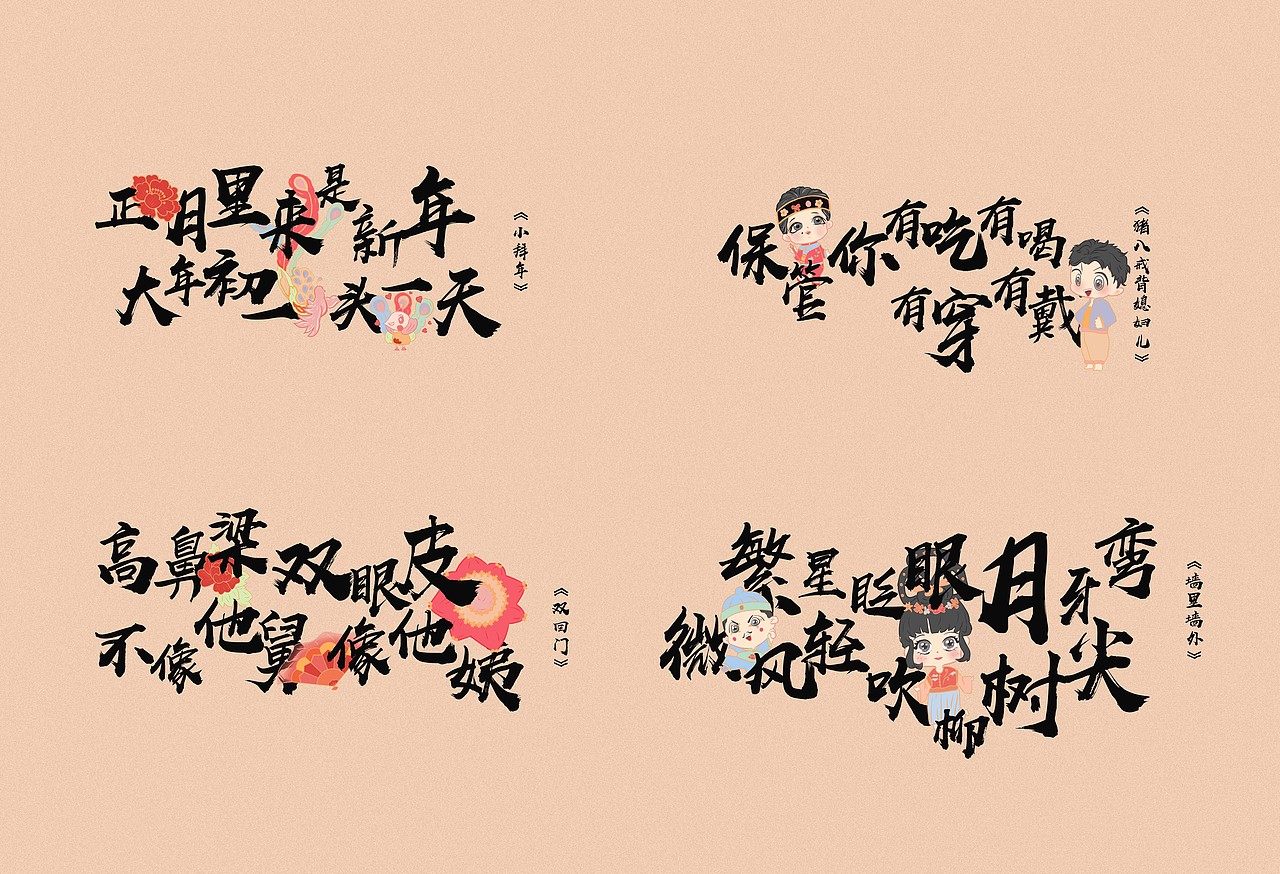 正月里来是新年
大年初一头一天
《小拜年》
保管你有吃有喝
有穿有戴
《猪八戒背媳妇儿》
高鼻梁双眼皮
不像他舅像他姨
《双回门》
繁星眨眼月牙弯
微风轻吹柳树尖
《墙里墙外》